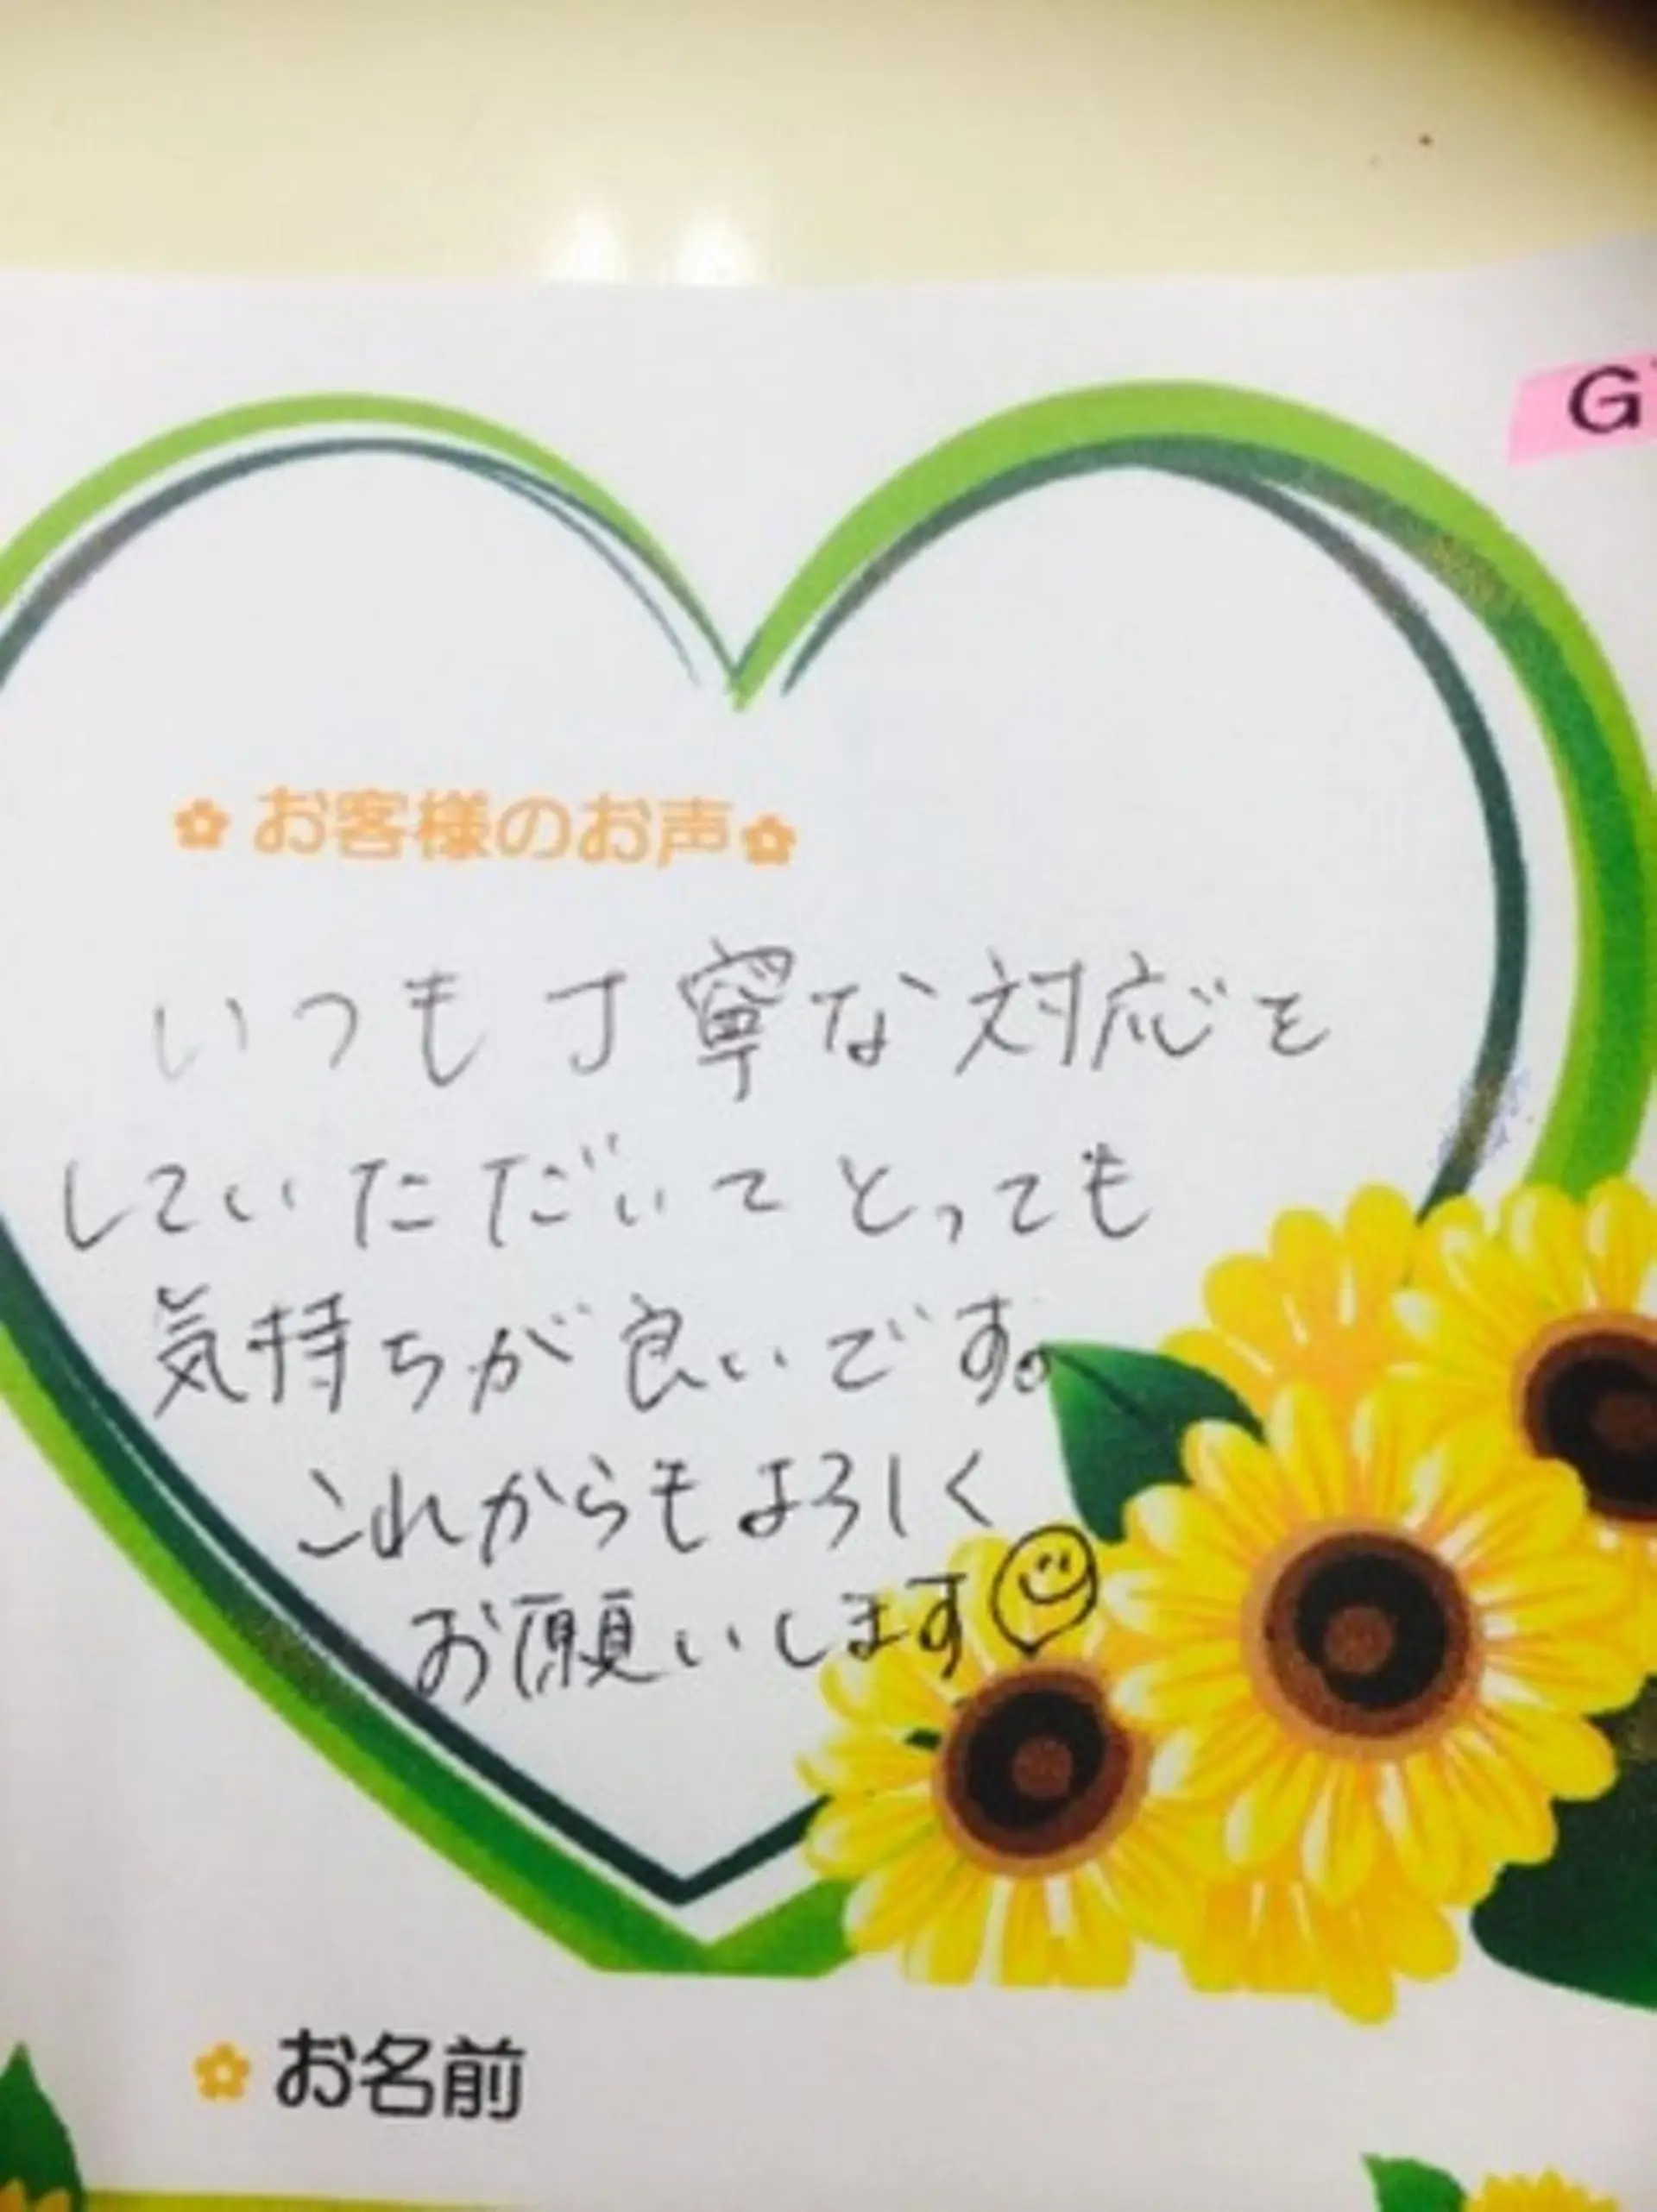 G
✿ お客様のお声 ✿
いつも丁寧な対応を
していただいてとっても
気持ちが良いです。
これからもよろしく
お願いします
✿ お名前